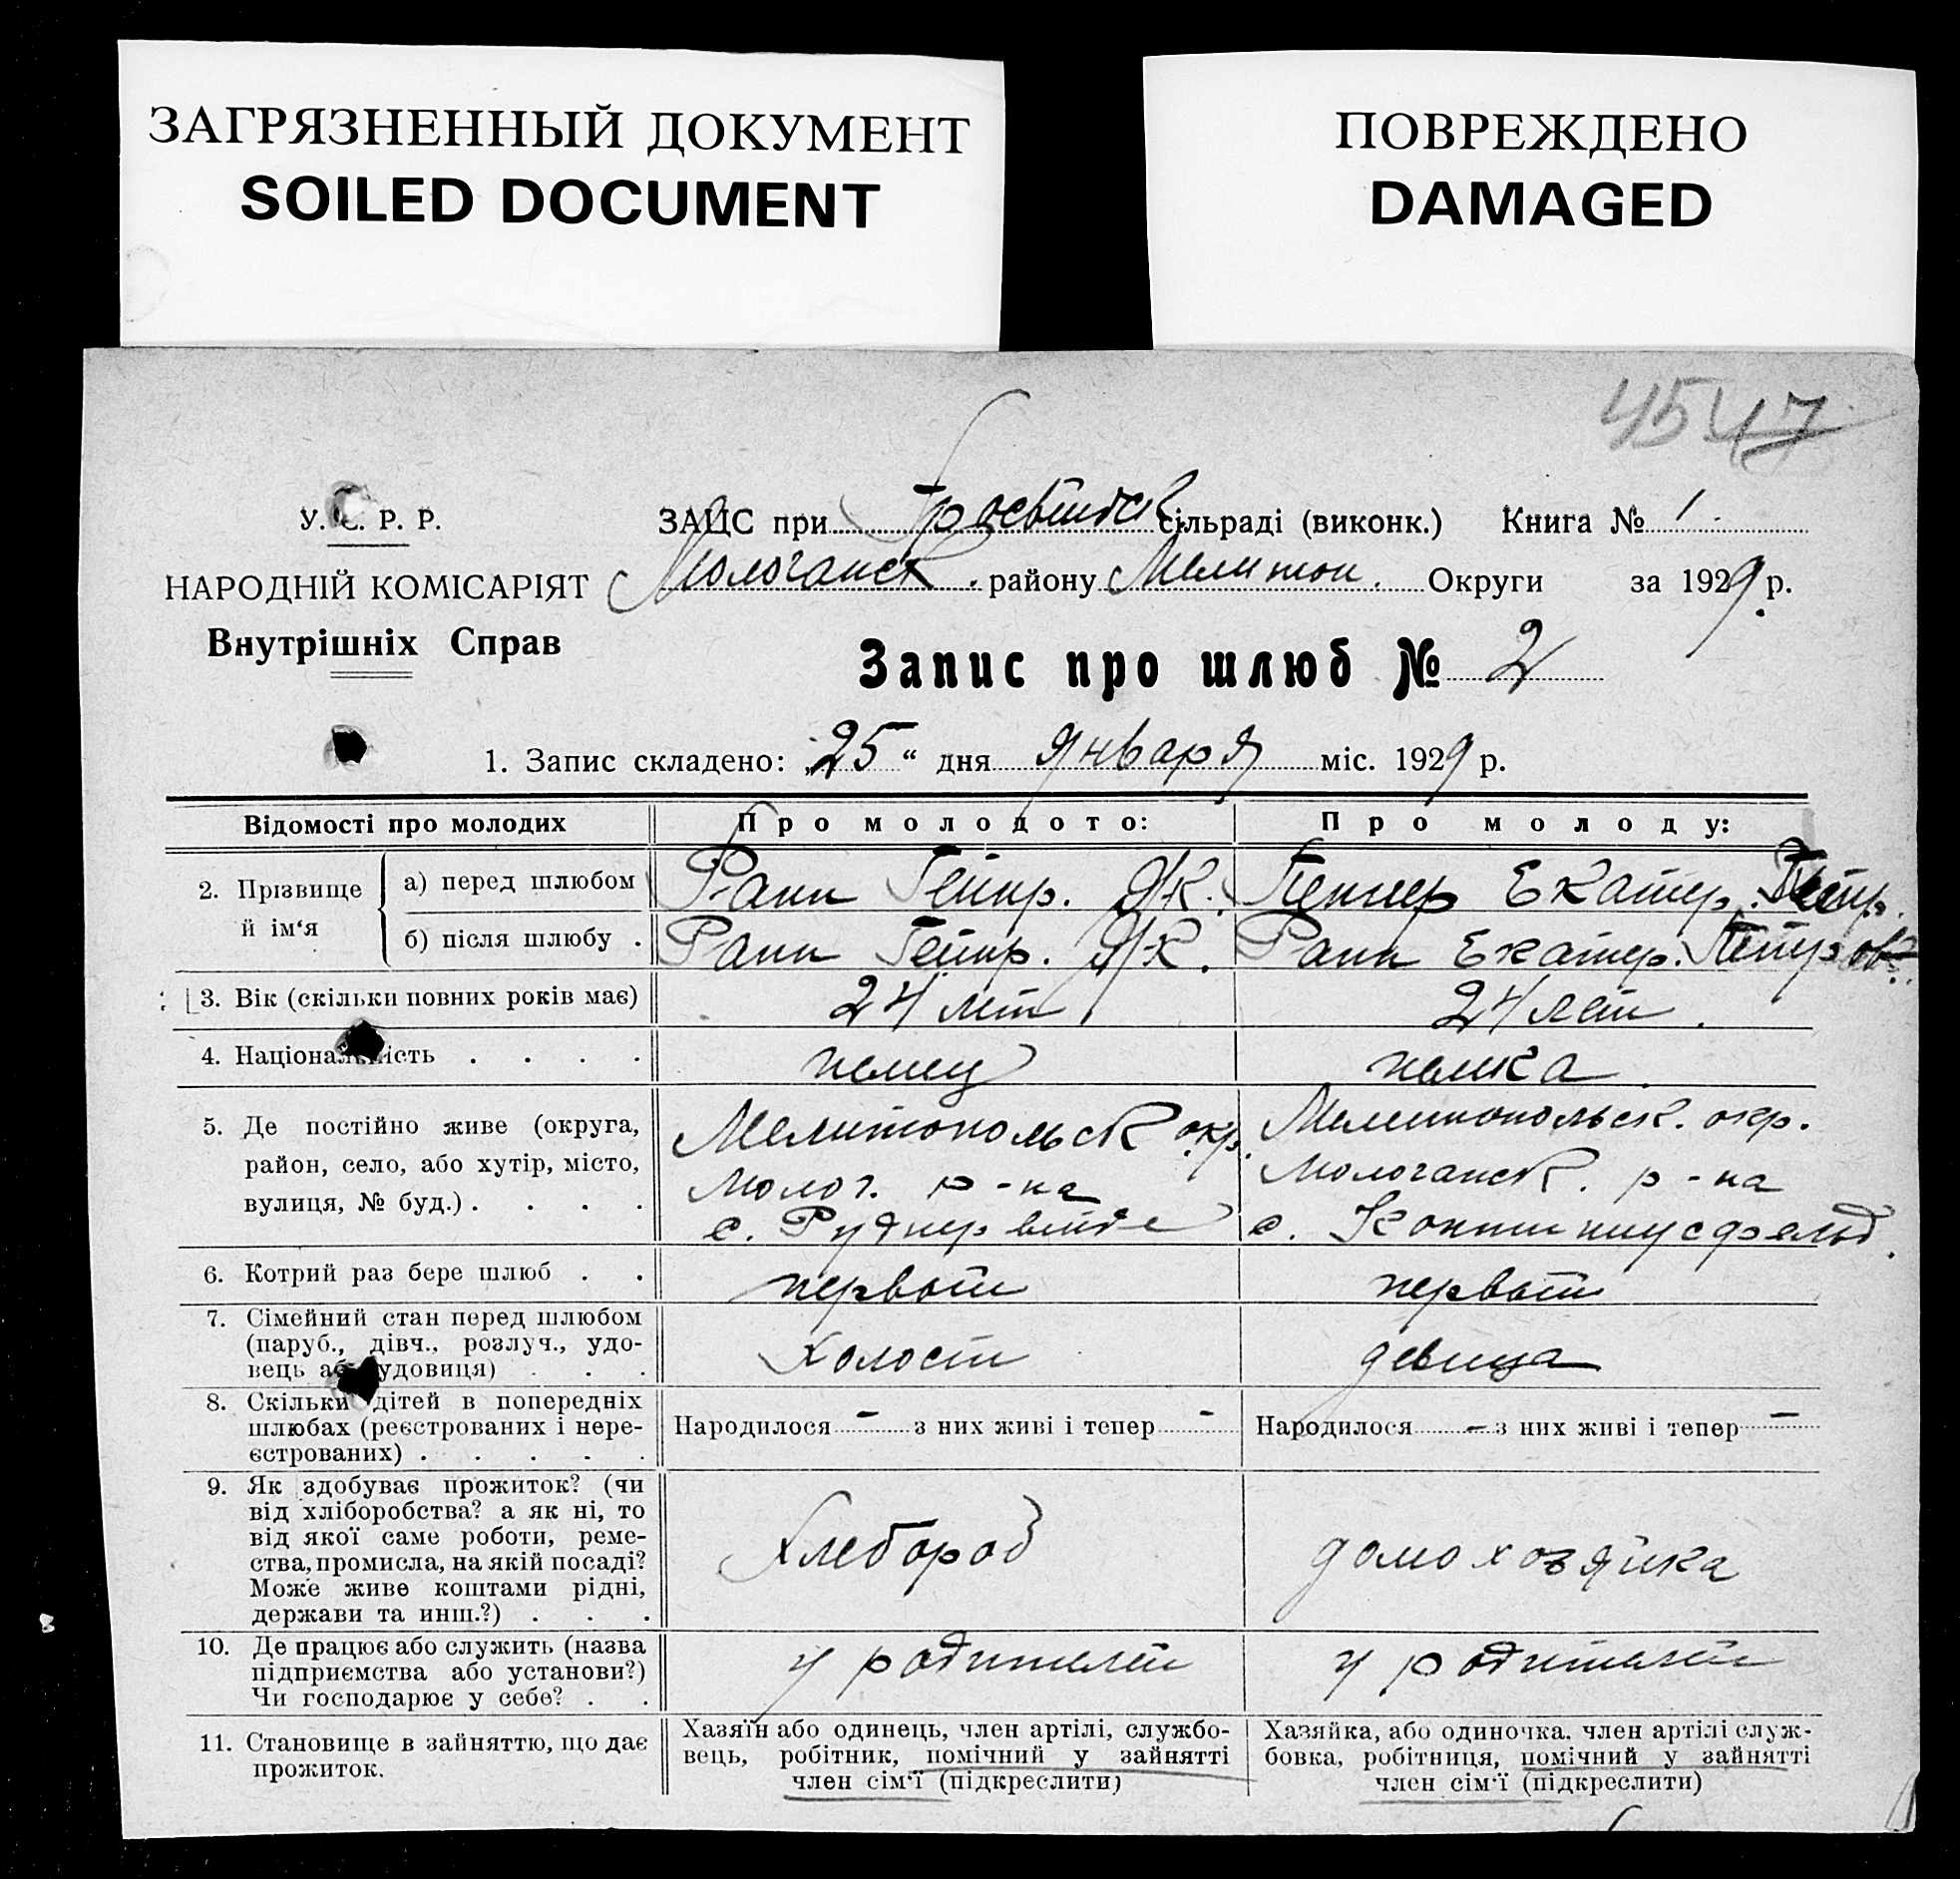 ЗАГРЯЗНЕННЫЙ ДОКУМЕНТ
SOILED DOCUMENT
ПОВРЕЖДЕНО
DAMAGED
45 47
У. С. Р. Р.
НАРОДНІЙ КОМІСАРІЯТ
Внутрішніх Справ
ЗАЦС при сільраді (виконк.) Книга № 1
Мологанск. району Мелитоп. Округи за 1929 р.
Запис про шлюб № 2
1. Запис складено: „25“ дня января міс. 1929 р.
Відомості про молодих
Про молодого:
Про молоду:
2. Прізвище й ім‘я
а) перед шлюбом
Ранн Генр. Як.
Пеннер Екатер. Петр.
б) після шлюбу .
Ранн Генр. Як.
Ранн Екатер. Петров.
3. Вік (скільки повних років має)
24 лет
24 лет.
4. Національність . . . .
немец
немка
5. Де постійно живе (округа,
район, село, або хутір, місто,
вулиця, № буд.) . . . .
Мелитопольск окр.
Молог. р-на
с. Руднервейде
Мелитопольск. окр.
Мологанск. р-на
с. Контениусфельд.
6. Котрий раз бере шлюб . .
первый
первый
7. Сімейний стан перед шлюбом
(паруб., дівч., розлуч., удо-
вець або удовиця) . . .
холост
девица
8. Скільки дітей в попередніх
шлюбах (реєстрованих і нере-
єстрованих) . . . . .
Народилося – з них живі і тепер –
Народилося – з них живі і тепер –
9. Як здобуває прожиток? (чи
від хліборобства? а як ні, то
від якої саме роботи, реме-
ства, промисла, на якій посаді?
Може живе коштами рідні,
держави та инш.?) . . .
Хлебороб
домохозяйка
10. Де працює або служить (назва
підприємства або установи?)
Чи господарює у себе? . .
у родителей
у родителей
11. Становище в зайняттю, що дає
прожиток.
Хазяїн або одинець, член артілі, службо-
вець, робітник, помічний у зайнятті
член сім‘ї (підкреслити)
Хазяйка, або одиночка. член артілі служ-
бовка, робітниця, помічний у зайнятті
член сім‘ї (підкреслити)